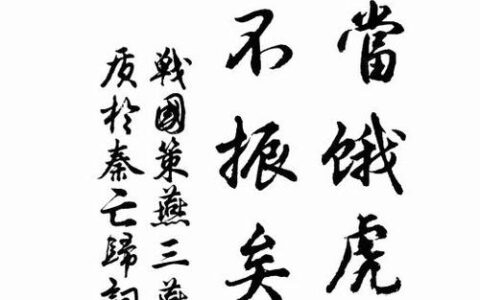 當餓虎
不振矣
戰國策燕三燕
质於秦亡歸詞